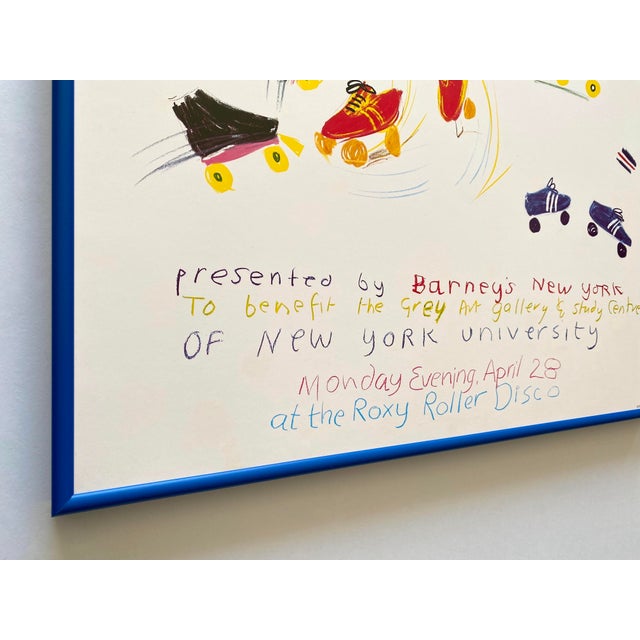 presented by Barney's New York
To benefit the Grey Art gallery & study Centre
OF New YORK University
Monday Evening, April 28
at the Roxy Roller Disco